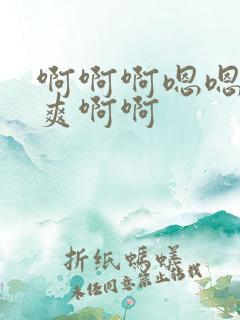 啊啊啊嗯嗯
爽啊啊
折纸蚂蟻
未经同意禁止转载